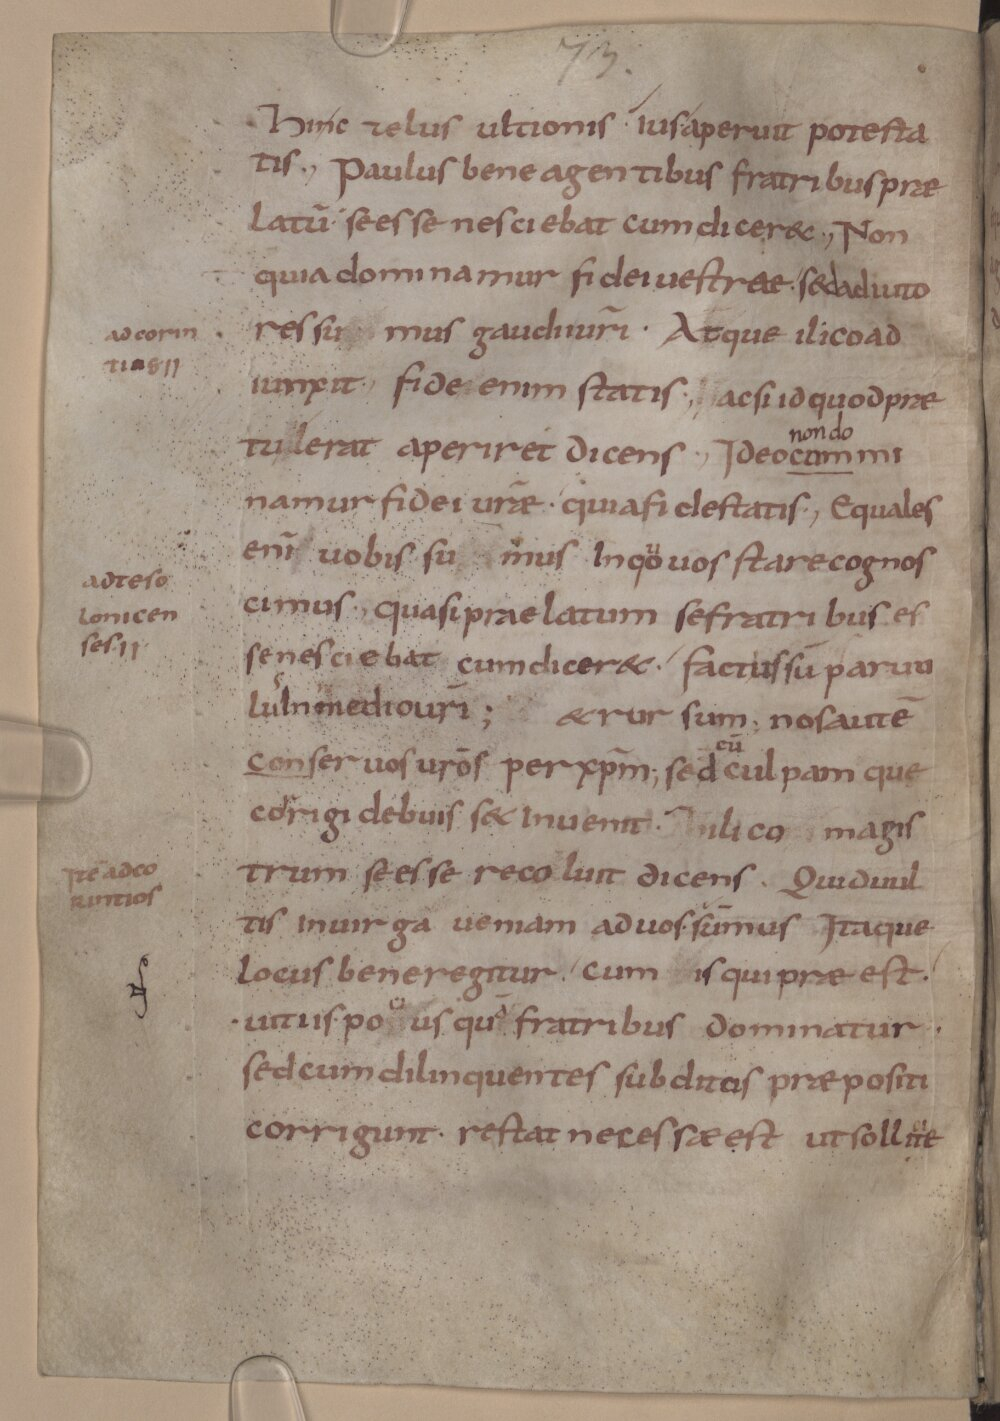 73.
hinc zelus ultionis · ius aperuit potesta
tis., Paulus bene agentibus fratribus prae
latū · se esse nesciebat cum dicer&., Non
quia dominamur fidei uestrae · sed adiuto
ad corin
tias II
res su mus gaudii ur̄i · Atque ilico ad
iunxit., fide enim statis., ac si id quod prae
non do
tulerat aperiret dicens., Ideo cum mi
namur fidei ur̄ae · quia fide statis., Equales
enī uobis su mus In quo uos stare cognos
ad teso
lonicen
ses II
cimus., quasi praelatum se fratribus es
se nesciebat cum dicer& · factus sū paruu
lus In medio ur̄i; & rur sum, nos autē
cū
conseruos ur̄os per xp̄m; sed culpam que
corrigi debuisse & Inuenit · ilico magis
Itē ad co
rintios
trum se esse recoluit dicens · Quid uul
tis In uirga ueniam ad uos · sūmus Itaque
locus bene regitur · cum is qui prae est ·
· uitiis · po us quā fratribus dominatur ·
sed cum dilinquentes subditos praepositi
corrigunt · restat necessae est ut sollite